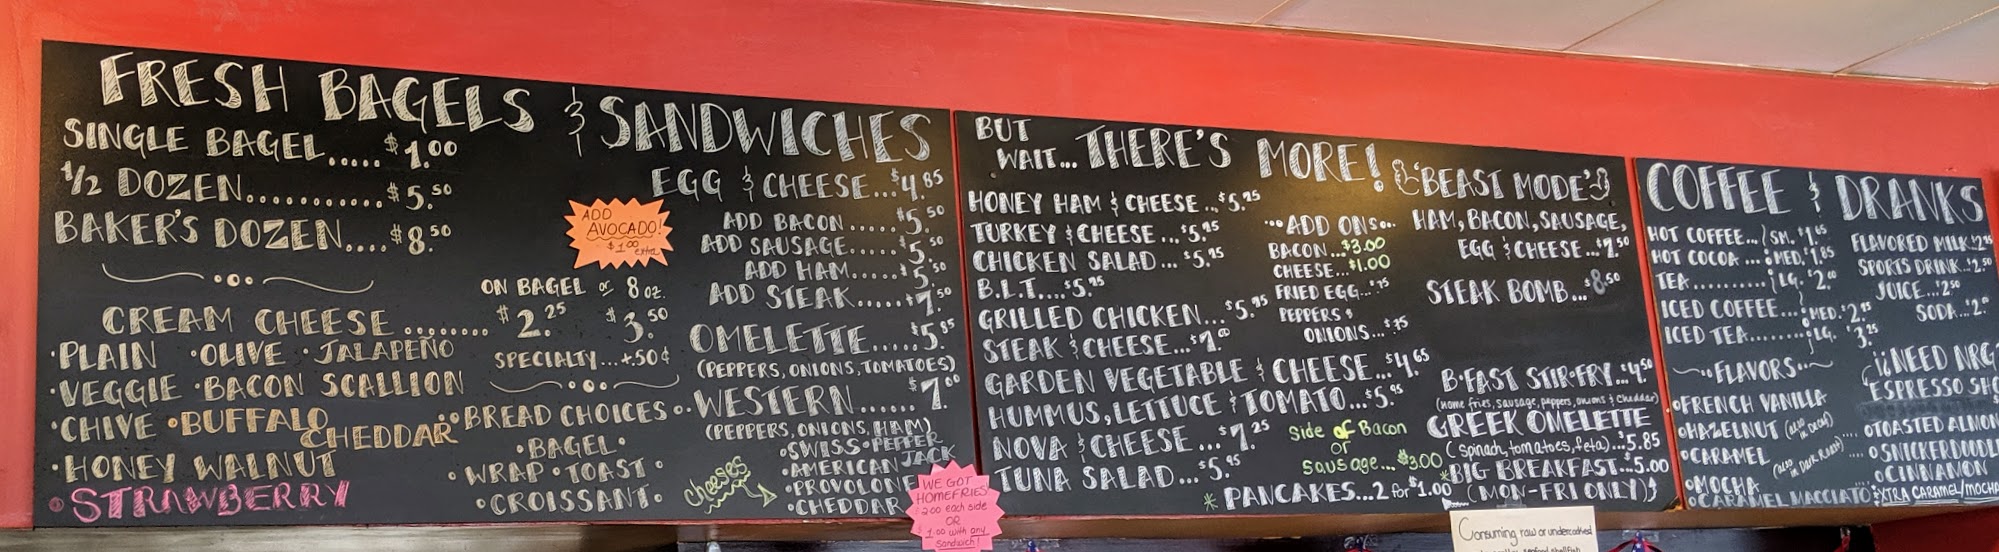 FRESH BAGELS & SANDWICHES
SINGLE BAGEL.....$1.00
1/2 DOZEN............$5.50
BAKER'S DOZEN....$8.50
ON BAGEL or 8 OZ.
CREAM CHEESE........$2.25 $3.50
SPECIALTY...+.50¢
•PLAIN •OLIVE •JALAPEÑO
•VEGGIE •BACON SCALLION
•CHIVE •BUFFALO CHEDDAR
•HONEY WALNUT
•STRAWBERRY
BREAD CHOICES
•BAGEL•
•WRAP •TOAST•
•CROISSANT•
ADD
AVOCADO!
$1.00
extra
EGG & CHEESE...$4.85
ADD BACON.....$5.50
ADD SAUSAGE....$5.50
ADD HAM.....$5.50
ADD STEAK.....$7.50
OMELETTE.....$5.85
(PEPPERS, ONIONS, TOMATOES)
WESTERN......$7.00
(PEPPERS, ONIONS, HAM)
Cheeses
•SWISS •PEPPER JACK
•AMERICAN
•PROVOLONE
•CHEDDAR
WE GOT
HOMEFRIES
2.00 each side
OR
1.00 with any
sandwich!
BUT
WAIT... THERE'S MORE!
HONEY HAM & CHEESE...$5.95
TURKEY & CHEESE...$5.95
CHICKEN SALAD...$5.95
B.L.T....$5.95
GRILLED CHICKEN...$5.95
STEAK & CHEESE...$7.00
GARDEN VEGETABLE & CHEESE...$4.65
HUMMUS, LETTUCE & TOMATO...$5.95
NOVA & CHEESE...$7.25
TUNA SALAD...$5.95
ADD ONS
BACON...$3.00
CHEESE...$1.00
FRIED EGG...$.75
PEPPERS &
ONIONS...$.75
Side of Bacon
or
sausage...$3.00
*PANCAKES...2 for $1.00
'BEAST MODE'
HAM, BACON, SAUSAGE,
EGG & CHEESE...$7.50
STEAK BOMB...$8.50
B•FAST STIR•FRY...$4.50
(home fries, sausage, peppers, onions & cheddar)
GREEK OMELETTE
(spinach, tomatoes, feta)...$5.85
*BIG BREAKFAST...$5.00
(MON-FRI ONLY)
Consuming raw or undercooked
COFFEE & DRANKS
HOT COFFEE... SM. $1.65
HOT COCOA... MED. $1.85
TEA......... LG. $2.00
ICED COFFEE... MED. $2.75
ICED TEA....... LG. $3.25
FLAVORED MILK
SPORTS DRINK...$2.50
JUICE...$2.50
SODA...$2.
FLAVORS
•FRENCH VANILLA
•HAZELNUT (also in Decaf)
•CARAMEL (also in Dark Roast)
•MOCHA
•CARAMEL MACCIATO
NEED NRG
ESPRESSO
•TOASTED
•SNICKERDOODLE
•CINNAMON
CARAMEL/MOCHA